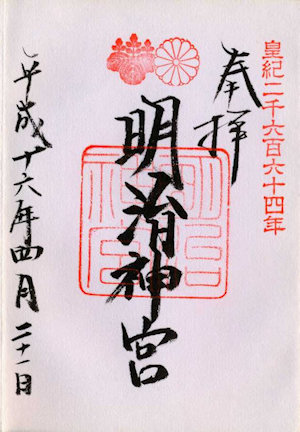 皇紀二千六百六十四年
奉拝
明治神宮
平成十六年四月二十一日
明治神宮